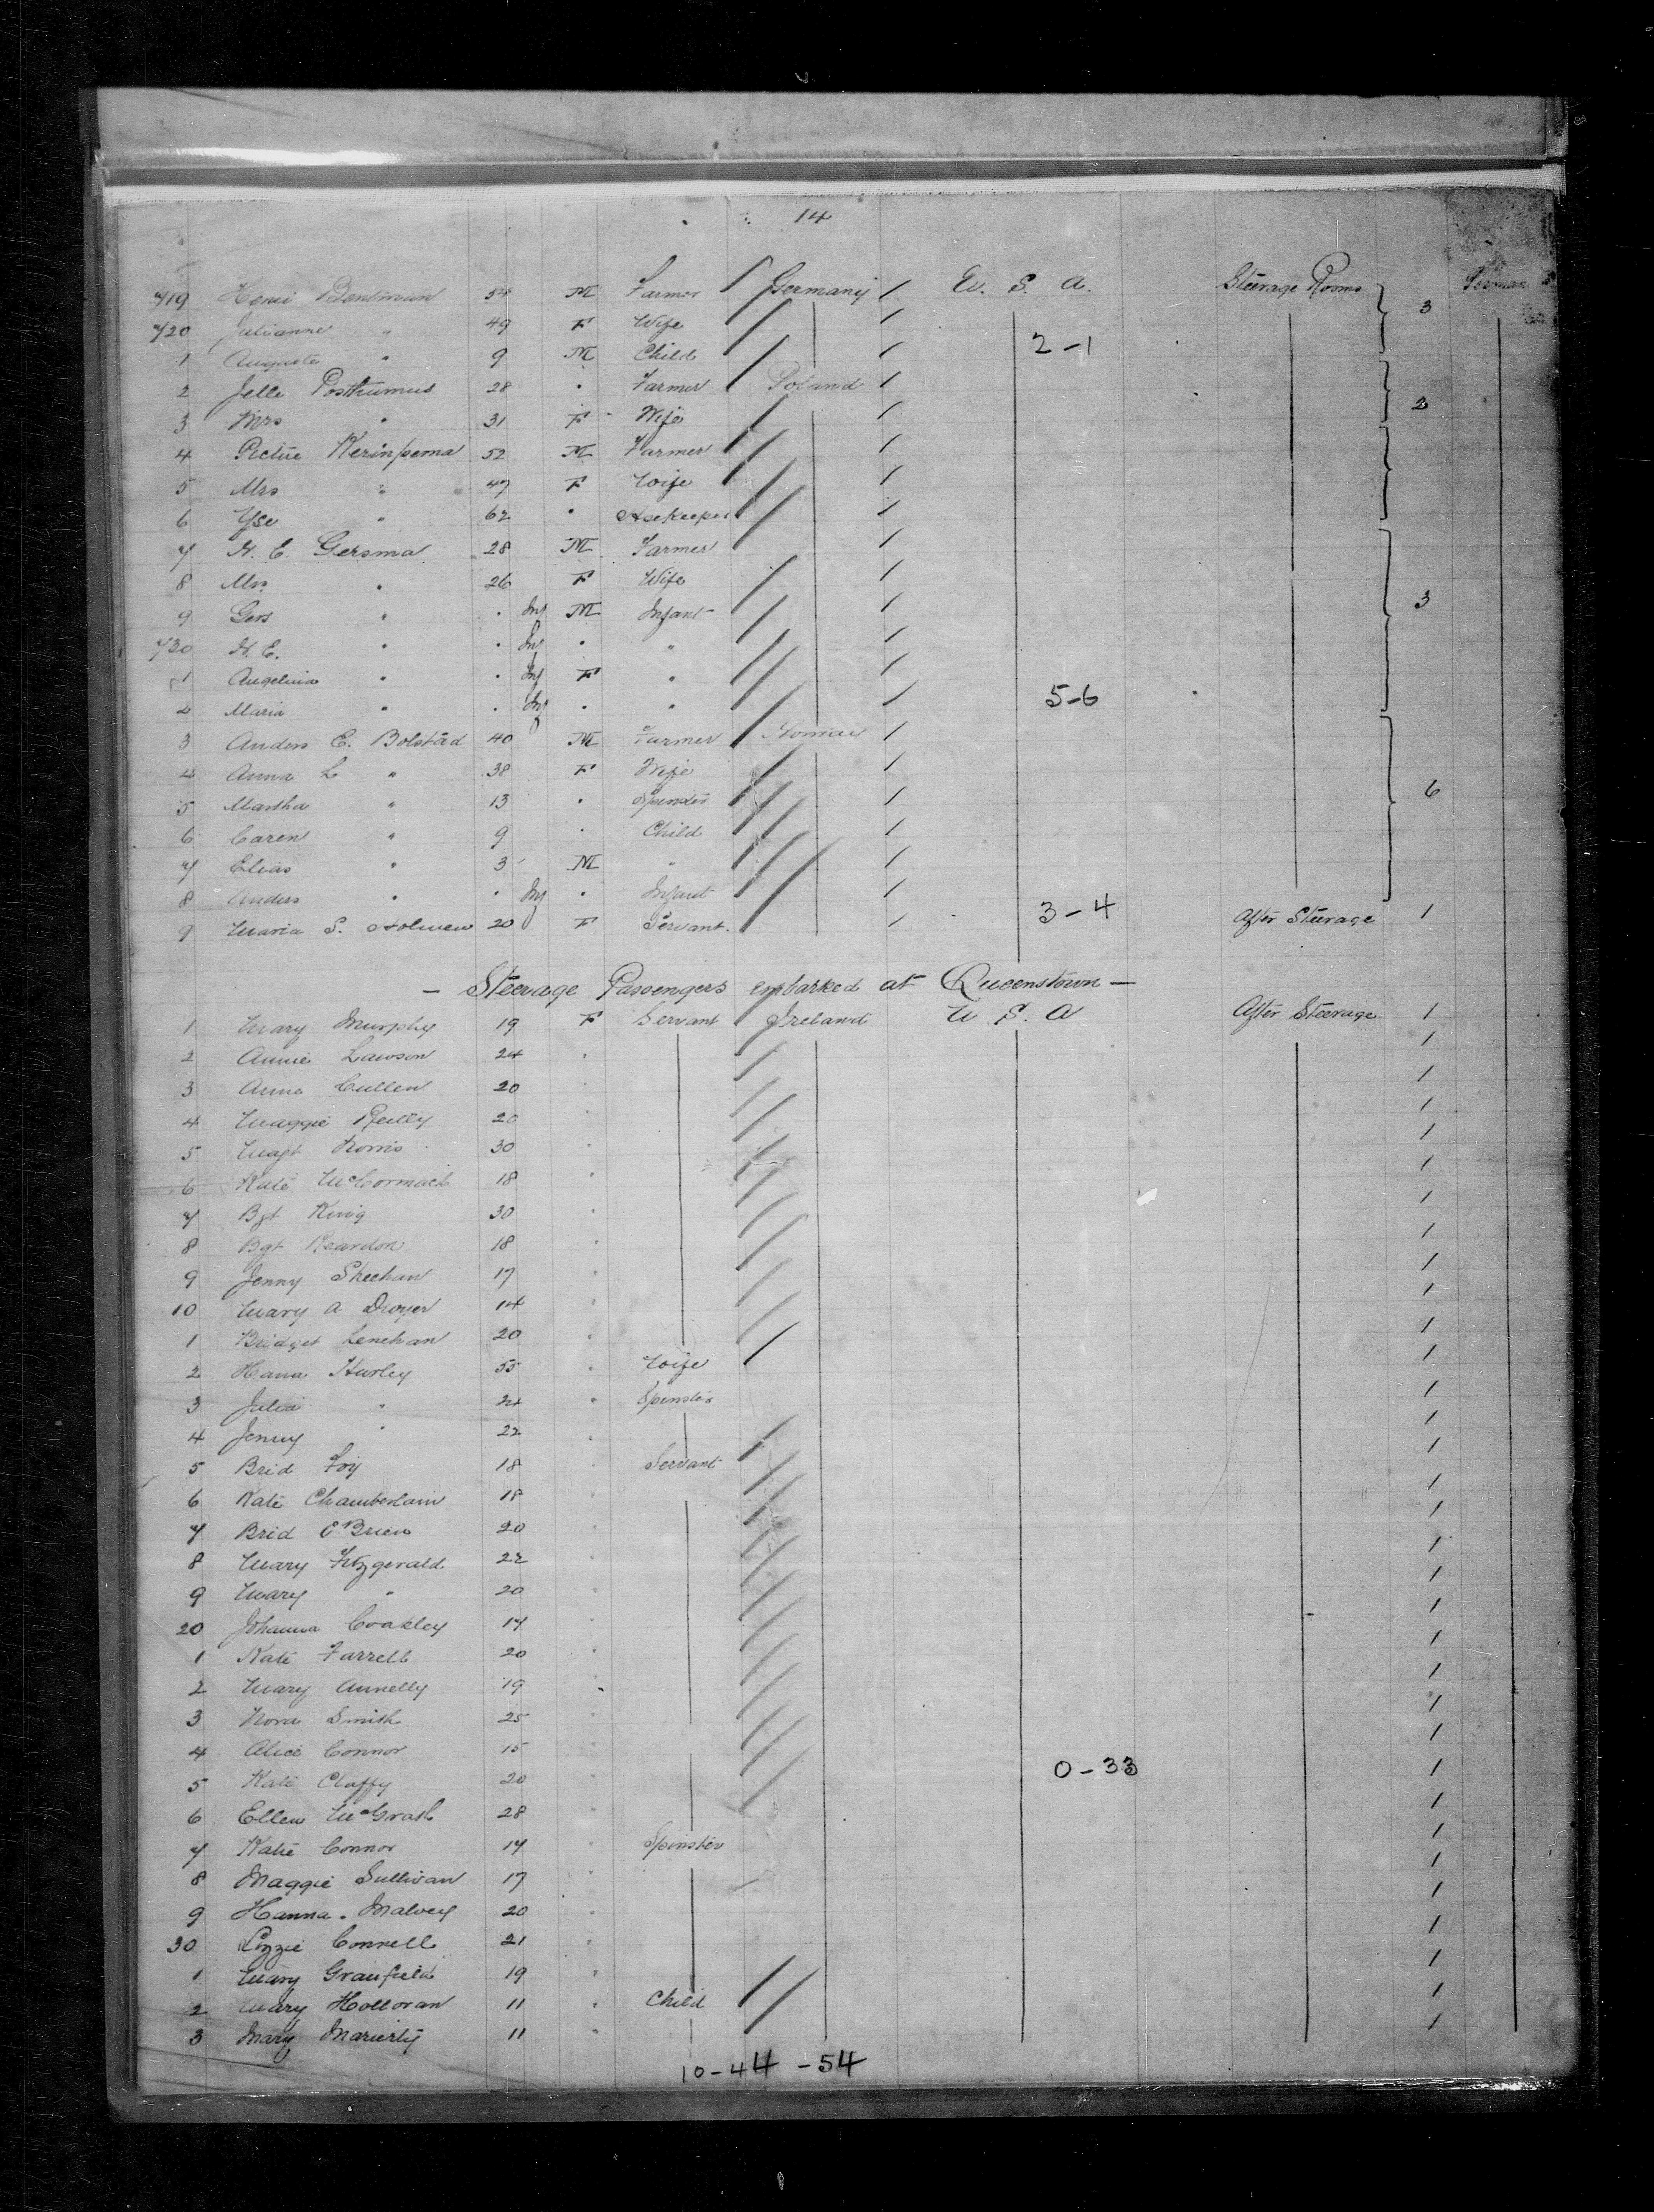 14
719 Henri Bentman 54 M Farmer / Germany / U. S. A. Steerage Rooms 3 German
720 Julianne " 49 F Wife / /
1 Auguste " 9 M Child / / 2-1
2 Jelle Posthumus 28 " Farmer / Poland /
3 Mrs " 31 F Wife / / 2
4 Pietie 52 M Farmer / /
5 Mrs " 47 F Wife / /
6 Yse " 62 " Hsekeeper / /
7 H. E. Gersma 28 M Farmer / /
8 Mrs " 26 F Wife / /
9 Gers " " Inf M Infant / / 3
730 H. E. " " Inf " " / /
1 Angelina " " Inf F " / /
2 Maria " " Inf " " / / 5-6
3 Anders E. Bolstad 40 M Farmer / /
4 Anna L " 38 F Wife / /
5 Martha " 13 " Spinster / / 6
6 Caren " 9 " Child / /
7 Elias " 3 M " / /
8 Anders " " Inf " Infant / /
9 Maria S. Holmen 20 F Servant / / 3-4 After Steerage 1
— Steerage Passengers embarked at Queenstown —
1 Mary Murphy 19 F Servant / Ireland U. S. A After Steerage 1
2 Annie Lawson 24 " / 1
3 Anna Cullen 20 " / 1
4 Maggie Reilly 20 " / 1
5 Magt Norris 30 " / 1
6 Kate McCormack 18 " / 1
7 Bgt King 30 " / 1
8 Bgt Reardon 18 " / 1
9 Jenny Sheehan 17 " / 1
10 Mary A Dwyer 14 " / 1
1 Bridget Lenehan 20 " / 1
2 Hana Hurley 55 " Wife / 1
3 Julia " 24 " Spinster 1
4 Jenny " 22 " / 1
5 Brid Foy 18 " Servant / 1
6 Kate Chamberlain 18 " / 1
7 Brid O'Brien 20 " / 1
8 Mary Fitzgerald 22 " / 1
9 Mary " 20 " / 1
20 Johanna Coakley 17 " / 1
1 Kate Farrell 20 " / 1
2 Mary Annelly 19 " / 1
3 Nora Smith 25 " / 1
4 Alice Connor 15 " / 1
5 Kate Claffy 20 " / 0-33 1
6 Ellen McGrath 28 " 1
7 Katie Connor 17 " Spinster 1
8 Maggie Sullivan 17 " 1
9 Hanna Malvey 20 " 1
30 Lizzie Connell 21 " 1
1 Mary Granfield 19 " / 1
2 Mary Holloran 11 " Child / 1
3 Mary 11 " 1
10-44-54